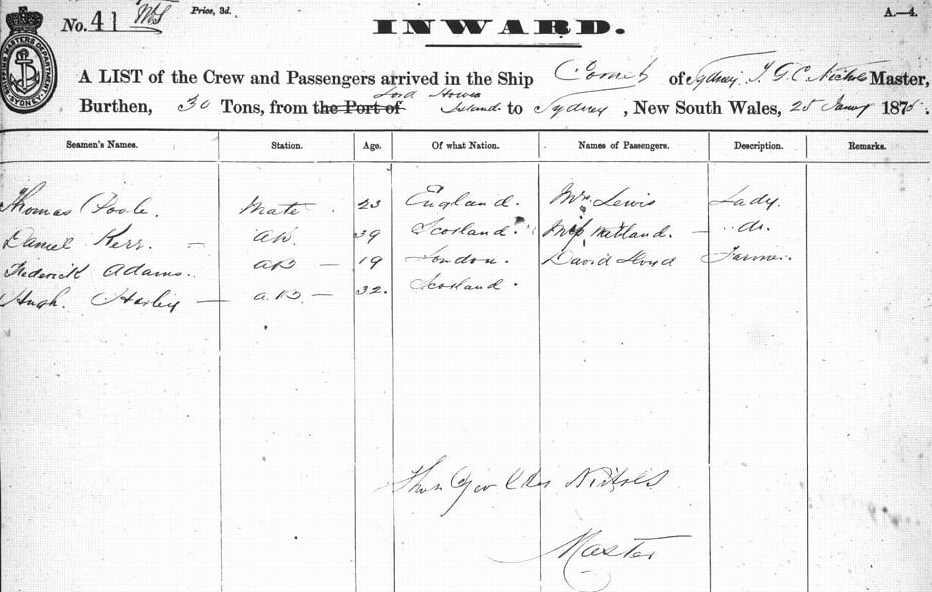 No. 41 Price, 3d. INWARD. A.—4.
SHIPPING MASTERS DEPARTMENT SYDNEY
A LIST of the Crew and Passengers arrived in the Ship Comet of Sydney T. G. C. Nichols Master,
Lord Howe
Burthen, 30 Tons, from the Port of Island to Sydney, New South Wales, 25 Jany 1875.
Seamen's Names. Station. Age. Of what Nation. Names of Passengers. Description. Remarks.
Thomas Poole. Mate 23 England. Mrs Lewis Lady
Daniel Kerr. — AB. 39 Scotland. Miss Mitland. — do.
Frederick Adams. AB — 19 London. David Lloyd Farmer.
Hugh. — a.B — 32. Scotland.
Thos Geo Nichols
Master